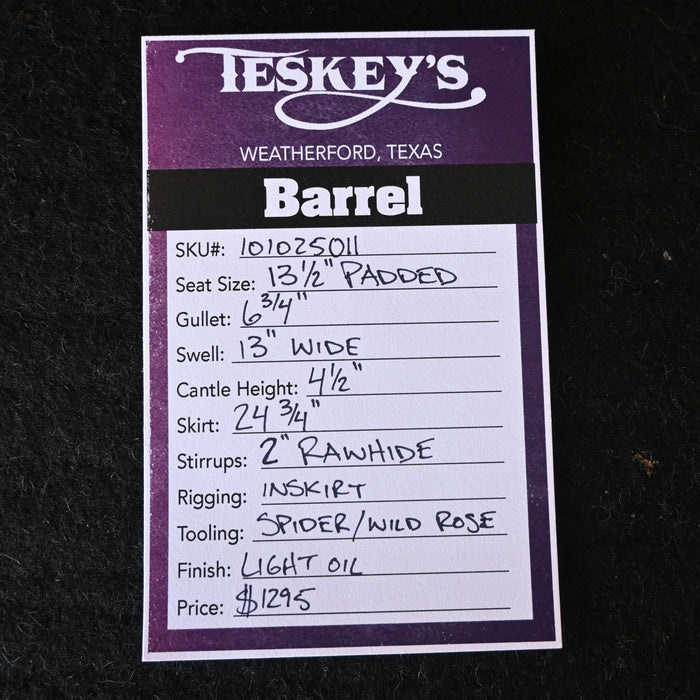 TESKEY'S
WEATHERFORD, TEXAS
Barrel
SKU#: 101025011
Seat Size: 13 1/2" PADDED
Gullet: 6 3/4"
Swell: 13" WIDE
Cantle Height: 4 1/2"
Skirt: 24 3/4"
Stirrups: 2" RAWHIDE
Rigging: INSKIRT
Tooling: SPIDER/WILD ROSE
Finish: LIGHT OIL
Price: $1295